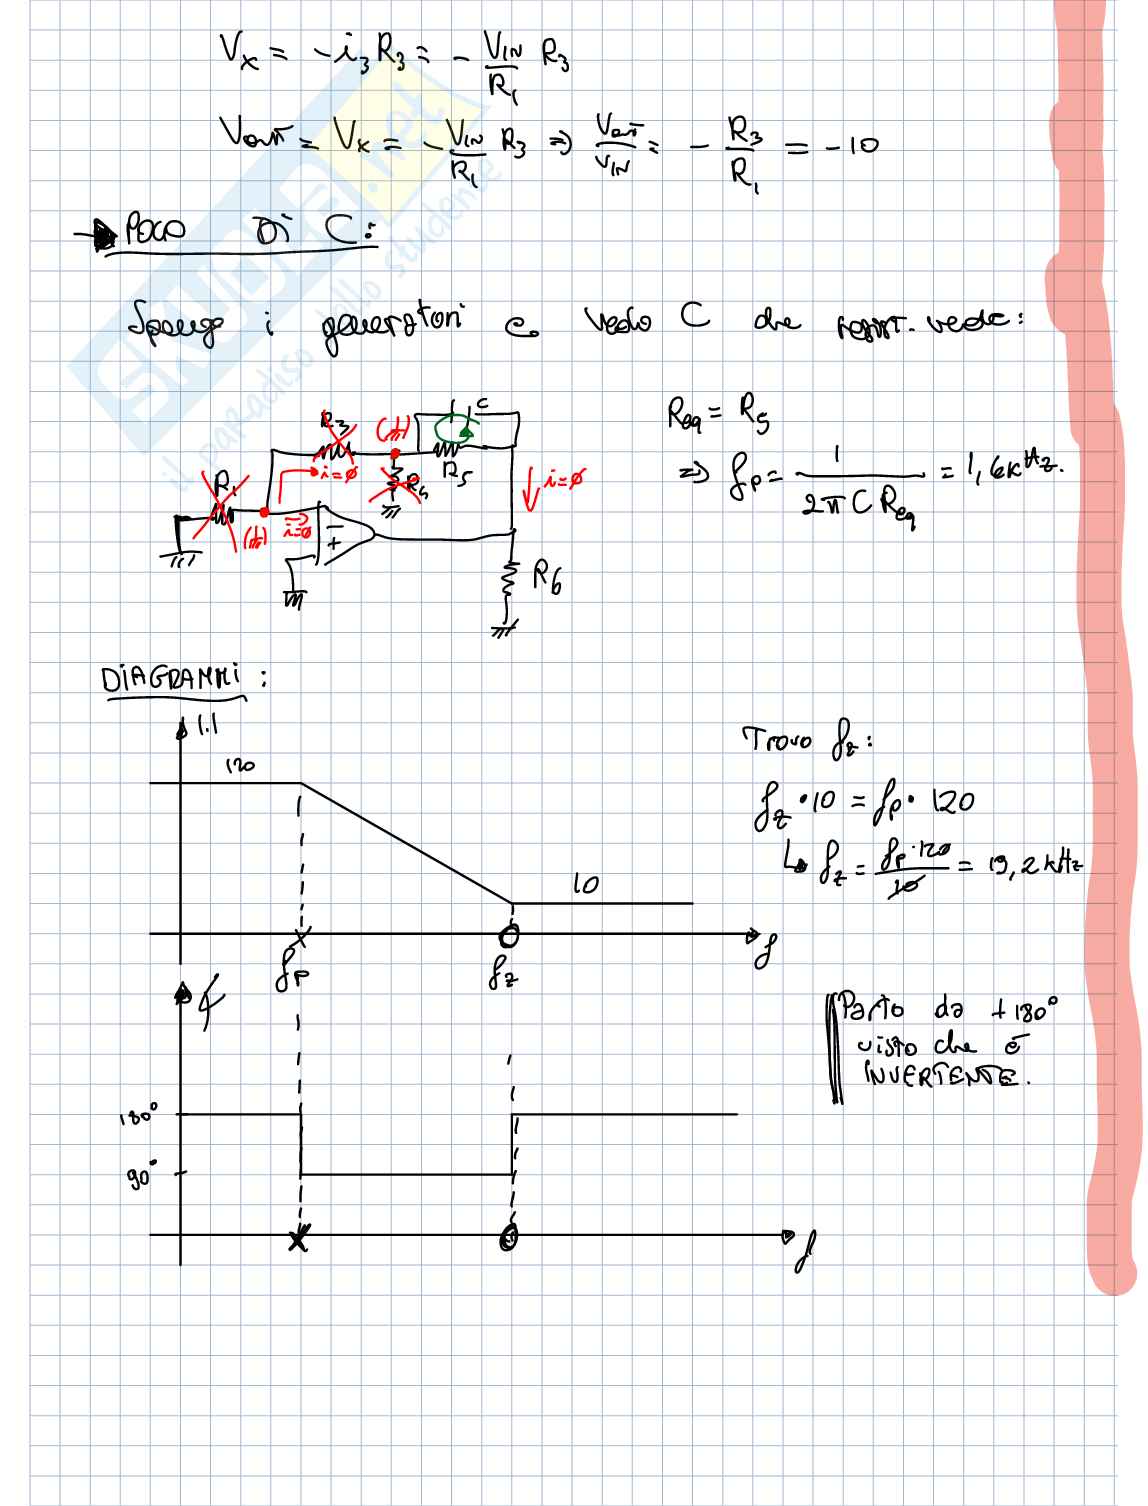 Vx = -i3 R3 = - VIN/R1 R3
Vout = Vx = - VIN/R1 R3 => Vout/VIN = - R3/R1 = -10
→ POLO DI C:
Spengo i generatori e vedo C che resist. vede:
R3
C
R1
i=ø
R4
R5
i=ø
i=ø
R6
Req = R5
=> fp = 1/(2π C Req) = 1,6 kHz.
DIAGRAMMI:
|.|
120
10
fp
fz
f
Trovo fz:
fz · 10 = fp · 120
↳ fz = fp · 120/10 = 19,2 kHz
180°
90°
f
Parto da +180°
visto che è
INVERTENTE.
SKUOLA.net
il paradiso dello studente